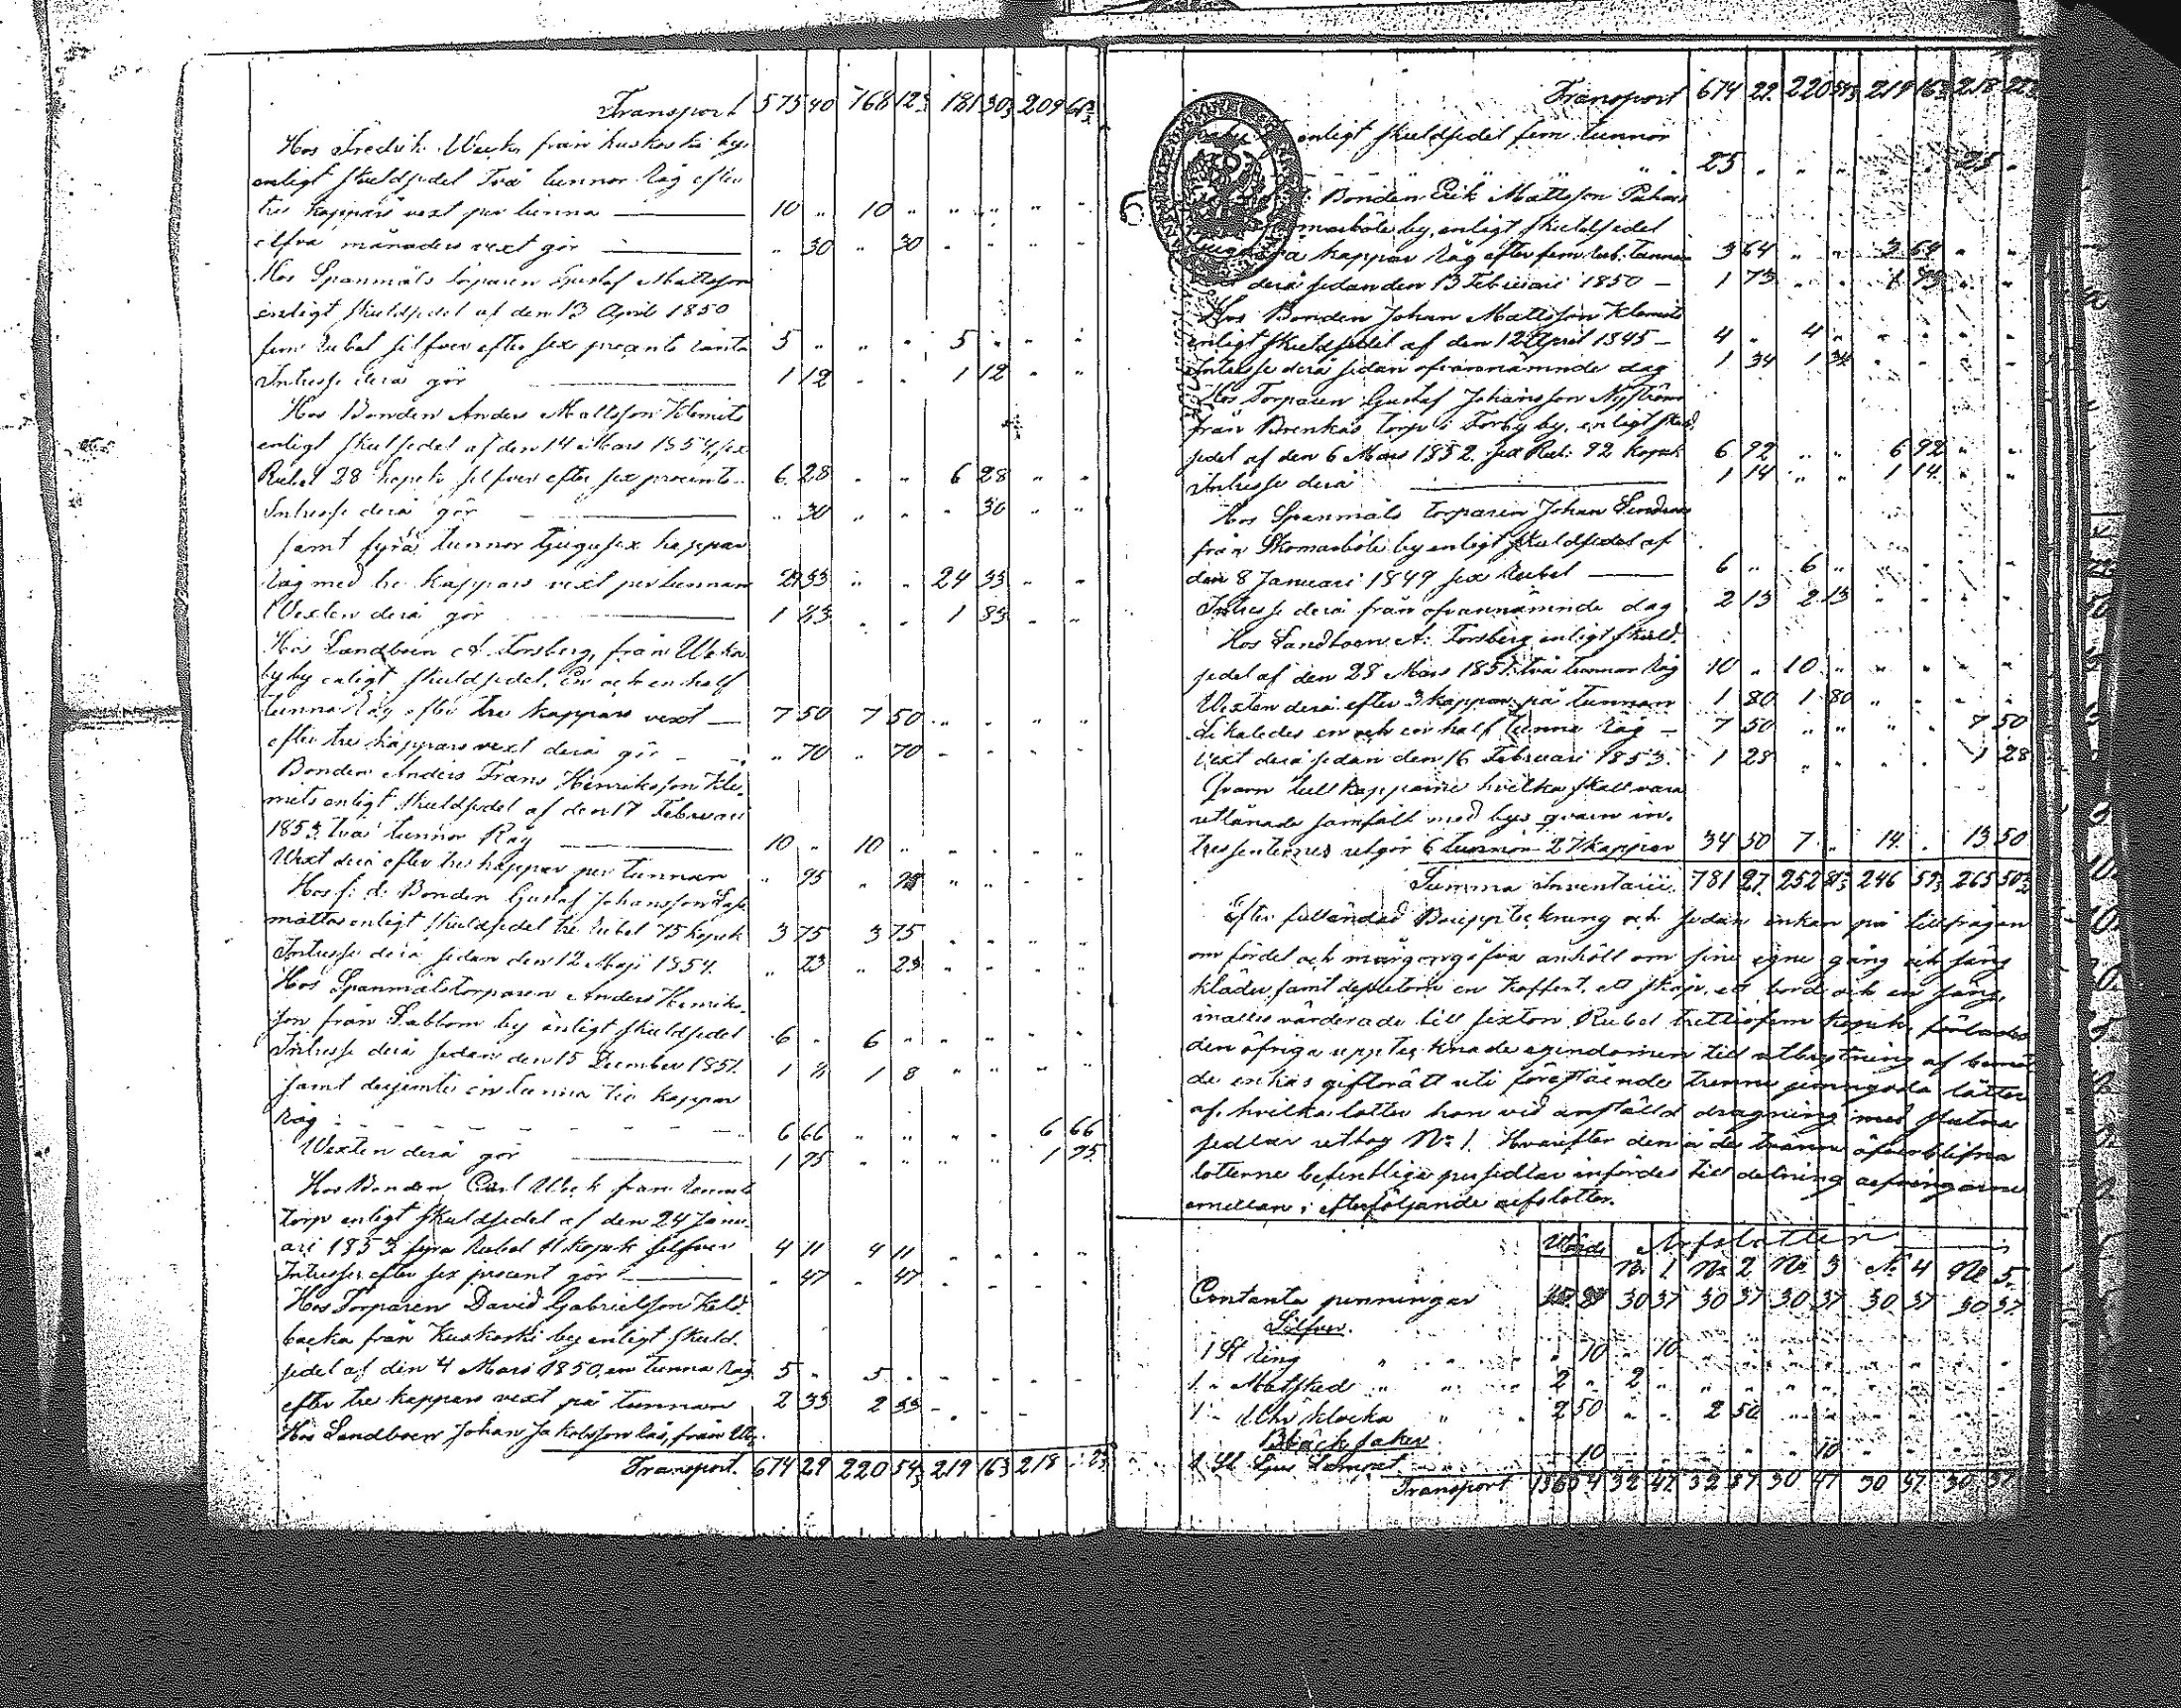 Transport 575 40 168 12 181 30 209 61
Hos Fredrik Week från Kuskoski by
enligt skuldsedel två tunnor Råg efter
tre kappars vext per tunna 10 " 10 " " " " "
elfva månaders vext gör " 30 " 30 " " " "
Hos Spanmåls torparen Gustaf Mattsson
enligt skuldsedel af den 13 April 1850
fem Rubel silfver efter sex procents ränta 5 " " " 5 " " "
Intresse derå gör 1 12 " " 1 12 " "
Hos Bonden Anders Mattsson Klemets
enligt skulsedel af den 14 Mars 1854, sex
Rubel 28 kopek silfver efter sex procents 6 28 " " 6 28 " "
Intresse derå gör " 30 " " " 30 " "
samt fyra tunnor tjugusex kappar
Råg med tre kappars vext per tunnan 24 33 " " 24 33 " "
Wexten derå gör 1 83 " " 1 83 " "
Hos Landboen A Forsberg, från
by enligt skuldsedel, En och en half
tunna Råg efter tre kappars vext 7 50 7 50 " " " "
efter tre kappars vext derå gör " 70 " 70 " " " "
Bonden Anders Frans Henriksson Kle-
mets enligt skuldsedel af den 17 Februari
1853. två tunnor Råg 10 " 10 " " " " "
Wext derå efter tre kappar per tunnan " 95 " 95 " " " "
Hos f: d: Bonden Gustaf Johansson
mattas enligt skuldsedel tre Rubel 75 kopek 3 75 3 75 " " " "
Intresse derå sedan den 12 Maji 1854. " 23 " 23 " " " "
Hos Spanmålstorparen Anders Henriks-
son från Labbom by enligt skuldsedel 6 " 6 " " " " "
Intresse derå sedan den 15 December 1851. 1 8 1 8 " " " "
samt desjemte en tunna tio kappar
Råg 6 66 " " " " 6 66
Wexten derå gör 1 75 " " " " 1 75
Hos Bonden Carl Week från
torp enligt skuldsedel af den 24 Janu-
ari 1853 fyra Rubel 11 kopek silfver 4 11 4 11 " " " "
Intresse efter sex procent gör " 47 " 47 " " " "
Hos Torparen David Gabrielsson Käld-
backa från Kuskoski by enligt skuld-
sedel af den 4 Mars 1850, en tunna Råg 5 " 5 " " " " "
efter tre kappars vext på tunnan 2 33 2 33 " " " "
Hos Landboen Johan Jakobsson från
Transport. 674 29 220 54 219 163 218
Transport 674 29 220 219 163 218
enligt skuldsedel fem tunnor
25 " " " " " 25 "
Bonden Erik Mattsson
by, enligt skuldsedel
kappar Råg efter fem Rub. tunnan 3 64 " " 3 64 " "
derå sedan den 13 Februari 1850 1 73 " " 1 73 " "
Hos Bonden Johan Mattsson Klemets
enligt skuldsedel af den 12 April 1845 4 " 4 " " " " "
Intresse derå sedan ofvannämnde dag 1 34 1 34 " " " "
Hos Torparen Gustaf Johansson Nyström
från Brenkas torp i Forby by, enligt skuld-
sedel af den 6 Mars 1852. sex Rub: 92 kopek 6 92 " " 6 92 " "
Intresse derå 1 14 " " 1 14 " "
Hos Spanmåls torparen Johan
från Skomarböle by enligt skuldsedel af
den 8 Januari 1849 sex Rubel 6 " 6 " " " " "
Intresse derå från ofvannämnde dag 2 13 2 13 " " " "
Hos Landboen A: Forsberg enligt skuld-
sedel af den 28 Mars 1851. två tunnor Råg 10 " 10 " " " " "
Wexten derå efter 3 kappar på tunnan 1 80 1 80 " " " "
Likaledes en och en half tunna Råg 7 50 " " " " 7 50
Vext derå sedan den 16 Februari 1853. 1 28 " " " " 1 28
Qvarn tull kapparne hvilka skall vara
utlånade samfält med bys qvarn in-
tressenternes utgör 6 tunnor 27 kappar 34 50 7 " 14 " 13 50
Summa Inventarii. 781 27 252 246 265
Efter fulländad Bouppteckning och sedan enkan på tillfrågan
om fördel och morgongåfva anhöll om sine egne gång och säng
kläder, samt dessutom en Koffert, ett skåp, ett bord och en säng,
inalles värderade till sexton Rubel trettiofem kopek,
den öfriga upptecknade egendomen till utbrytning af
de enkas giftorätt uti föreståënde trenne lotter
af hvilka lotter hon vid anstäld dragning med slutna
sedlar uttog N:o 1. Hvarefter den å de öfverblifna
lotterne befintliga persedlar infördes till delning arfvingarne
emellan i efterföljande arfslotter.
Wärde Arfslotten
N:o 1. N:o 2. N:o 3 N:o 4 N:o 5.
Contanta penningar 30 37 30 37 30 37 30 37 30 37
Silfver.
1 St Ring " 10 " 10 " " " " " " " "
1 " Matsked 2 " 2 " " " " " " " " "
1 " Uhr klocka 2 50 " " 2 50 " " " " " "
Bläck saker
1 St Ljus " 10 " " " " " 10 " " " "
Transport 156 54 32 47 32 87 30 47 30 37 30 37